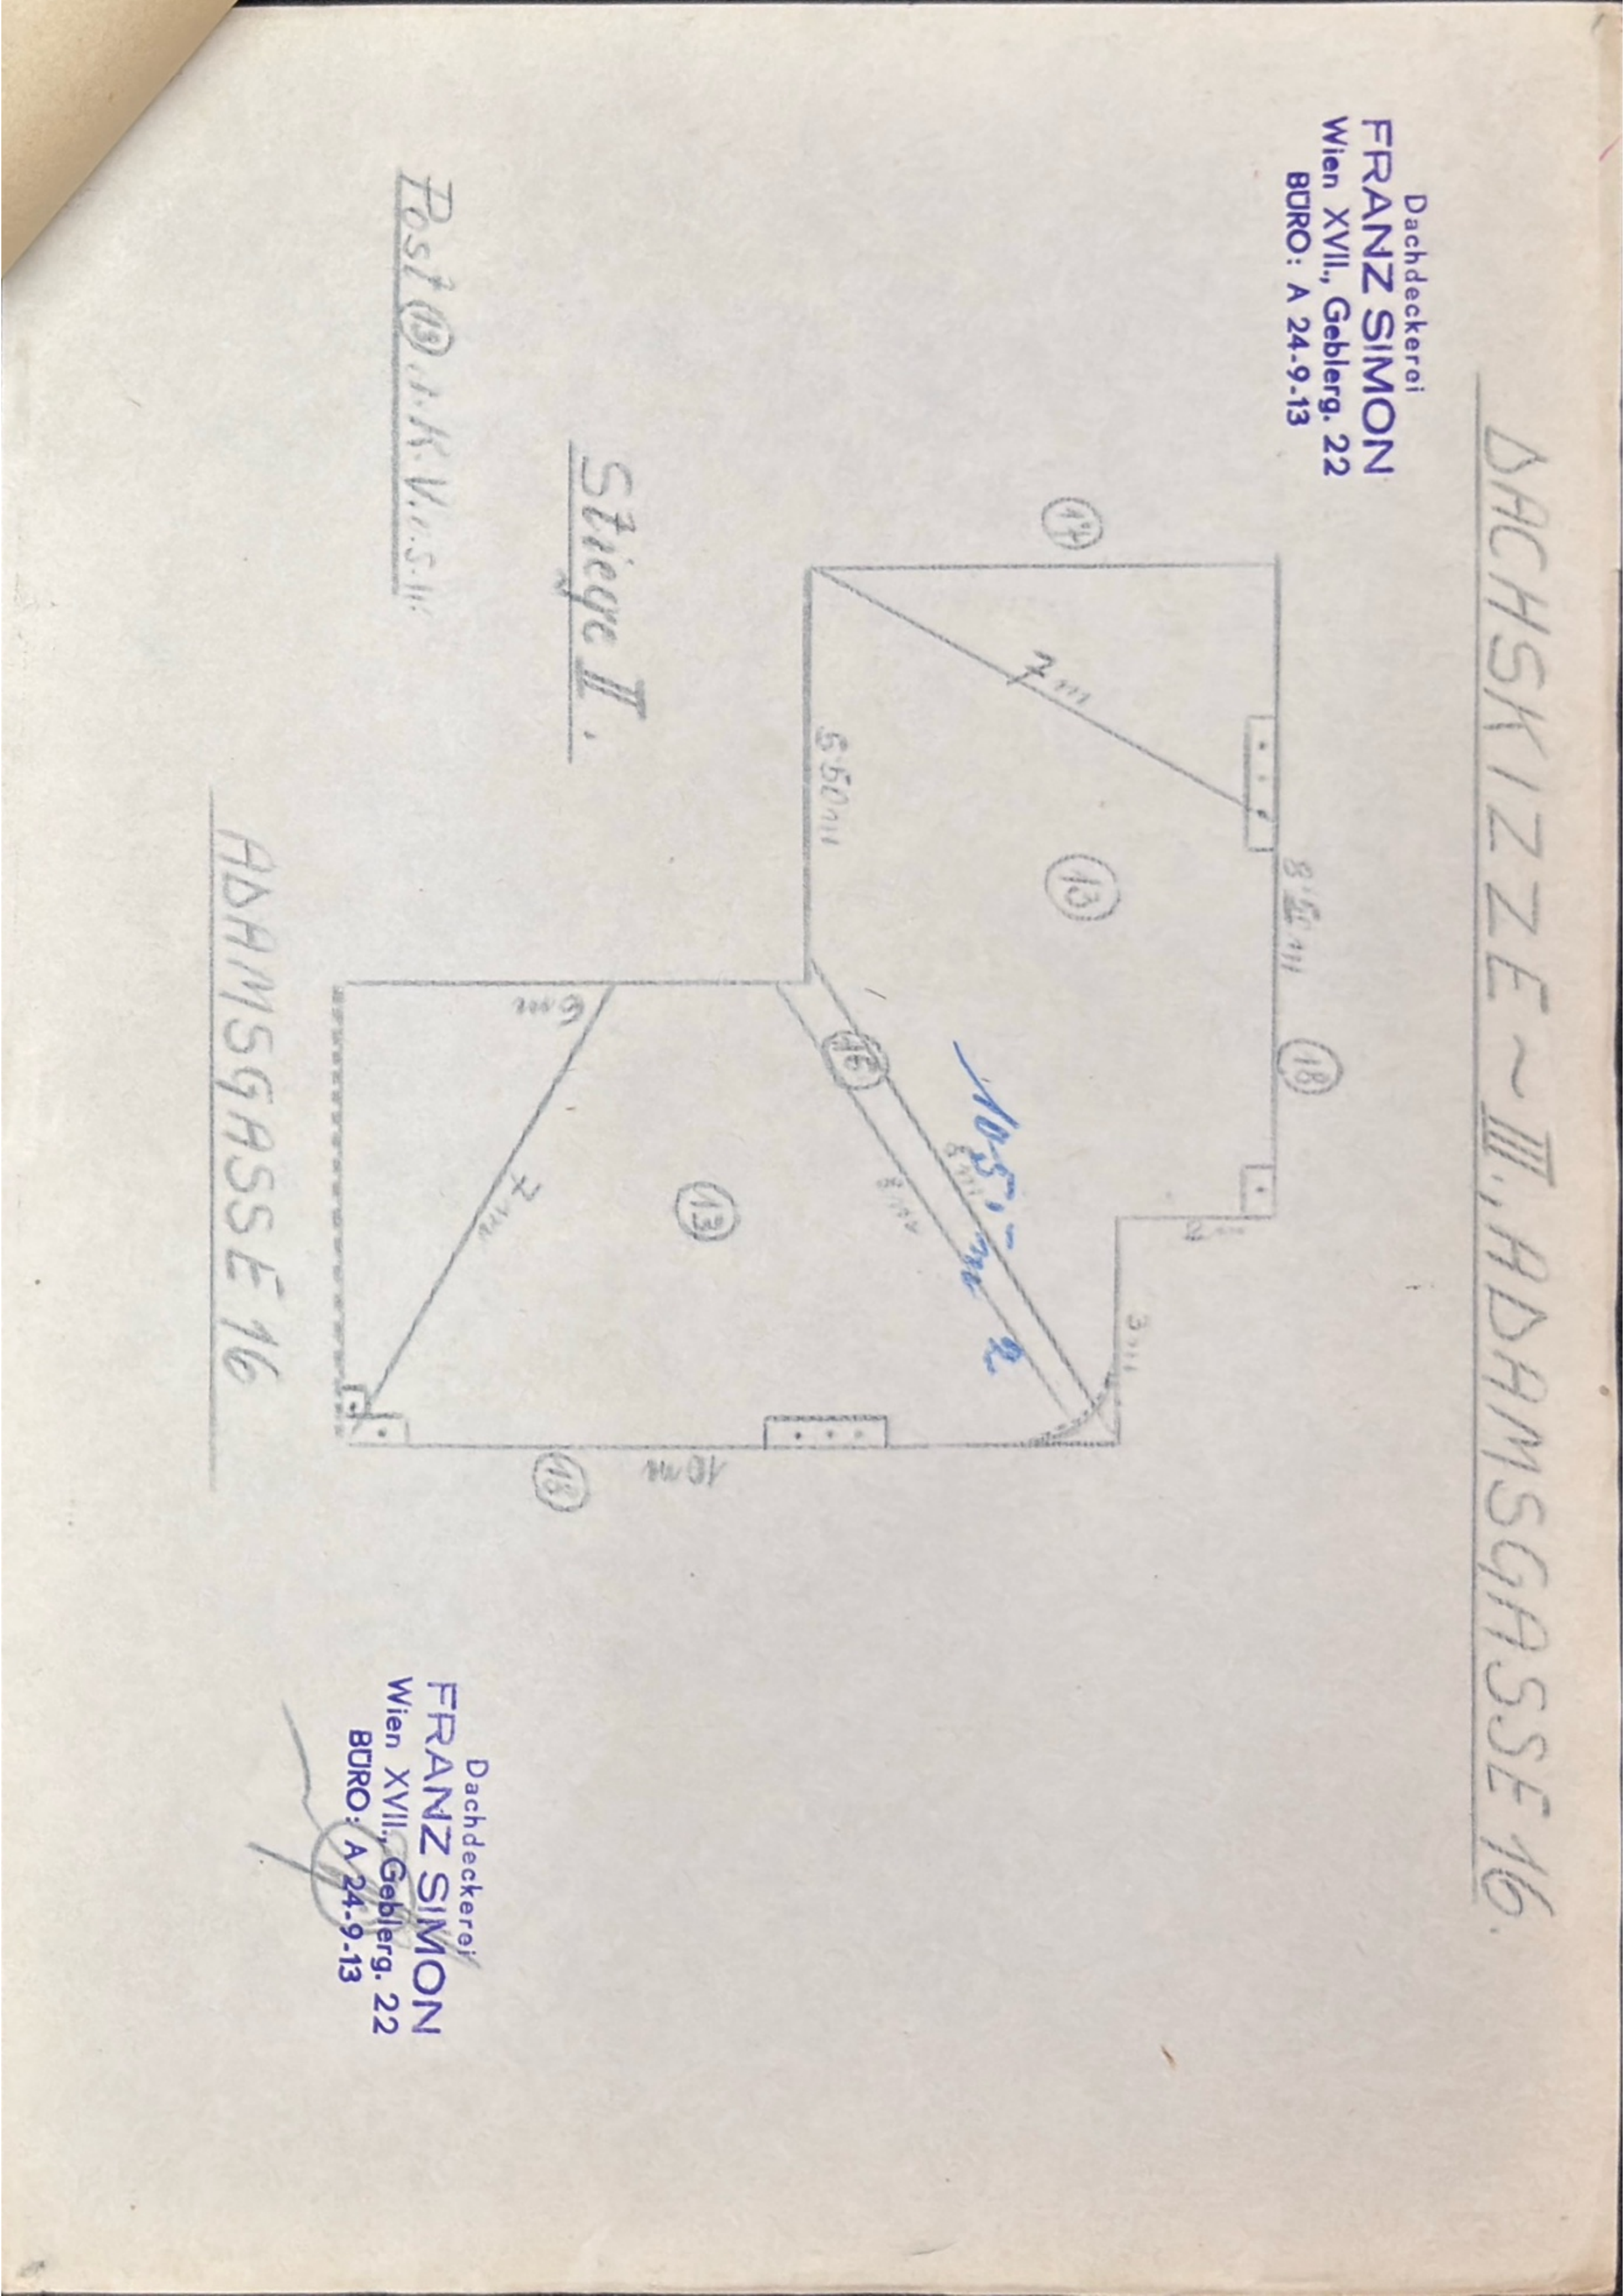 DACHSKIZZE ~ III., ADAMSGASSE 16.
Dachdeckerei
FRANZ SIMON
Wien XVII., Geblerg. 22
BÜRO: A 24-9-13
17
7 m
13
18
5·50 m
3 m
16
8 m
8 m
105,- m 2
13
6 m
7 m
10 m
18
Stiege II.
Post 13
ADAMSGASSE 16
Dachdeckerei
FRANZ SIMON
Wien XVII., Geblerg. 22
BÜRO: A 24-9-13